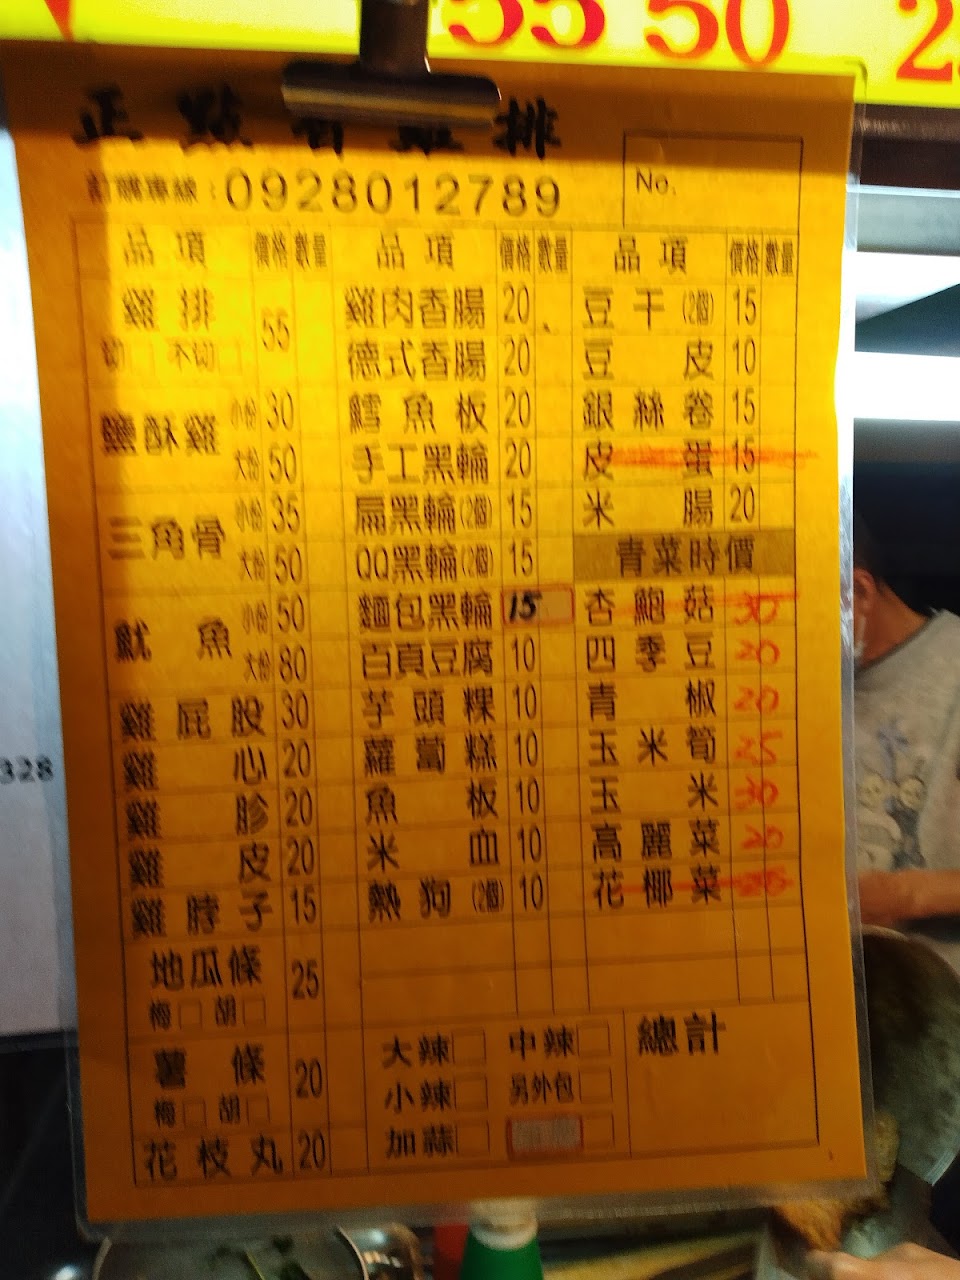 55 50 2
正點香雞排
訂購專線:0928012789
No.
品項 價格 數量 品項 價格 數量 品項 價格 數量
雞排 55
切□ 不切□
鹽酥雞 小份 30
大份 50
三角骨 小份 35
大份 50
魷魚 小份 50
大份 80
雞屁股 30
雞心 20
雞胗 20
雞皮 20
雞脖子 15
地瓜條 25
梅□ 胡□
薯條 20
梅□ 胡□
花枝丸 20
雞肉香腸 20
德式香腸 20
鱈魚板 20
手工黑輪 20
扁黑輪(2個) 15
QQ黑輪(2個) 15
麵包黑輪 15
百頁豆腐 10
芋頭粿 10
蘿蔔糕 10
魚板 10
米血 10
熱狗(2個) 10
大辣□ 中辣□
小辣□ 另外包□
加蒜□
豆干(2個) 15
豆皮 10
銀絲卷 15
皮蛋 15
米腸 20
青菜時價
杏鮑菇 30
四季豆 20
青椒 20
玉米筍 25
玉米 30
高麗菜 20
花椰菜
總計
328